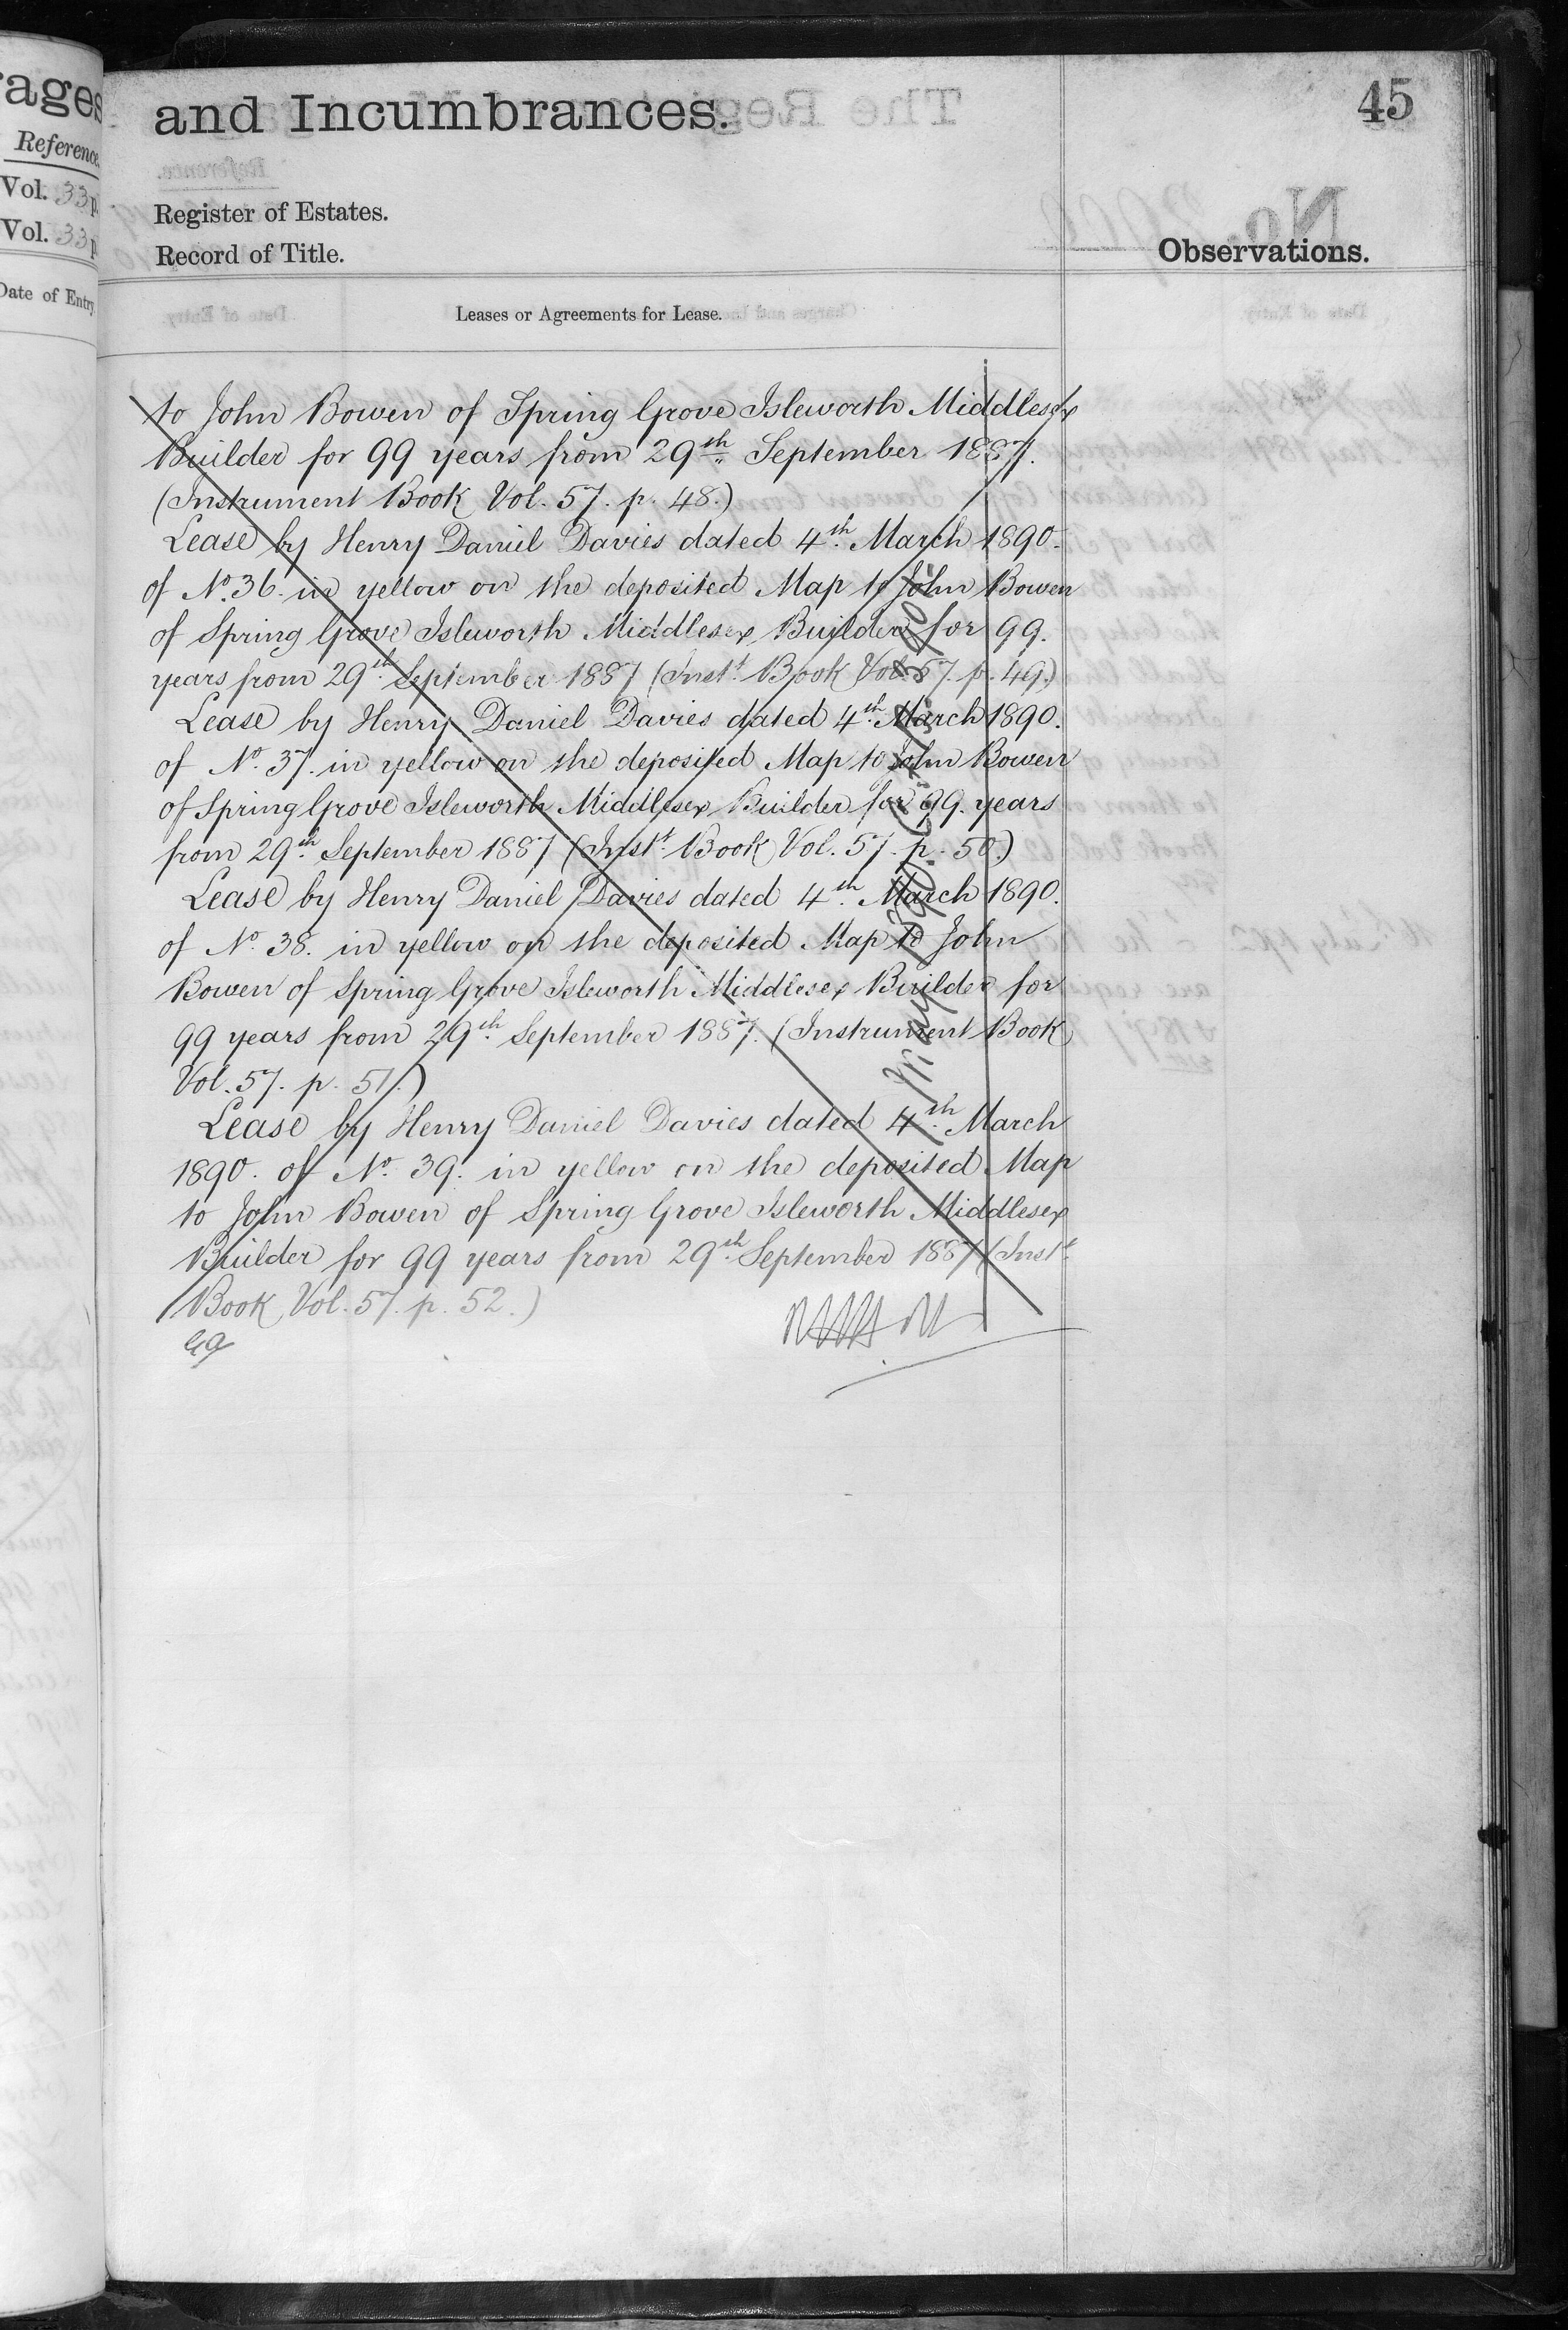 rages
Reference.
Vol. 33 p.
Vol. 33 p.
Date of Entry
and Incumbrances.
45
Register of Estates.
Record of Title.
Observations.
Leases or Agreements for Lease.
to John Bowen of Spring Grove Isleworth Middlesex
Builder for 99 years from 29th September 1887.
(Instrument Book Vol. 57. p. 48.)
Lease by Henry Daniel Davies dated 4th March 1890.
of No. 36. in yellow on the deposited Map to John Bowen
of Spring Grove Isleworth Middlesex Builder for 99.
years from 29th September 1887 (Inst. Book Vol. 57. p. 49.)
Lease by Henry Daniel Davies dated 4th March 1890.
of No. 37. in yellow on the deposited Map to John Bowen
of Spring Grove Isleworth Middlesex Builder for 99. years
from 29th September 1887 (Inst. Book Vol. 57. p. 50.)
Lease by Henry Daniel Davies dated 4th March 1890.
of No. 38. in yellow on the deposited Map to John
Bowen of Spring Grove Isleworth Middlesex Builder for
99 years from 29th September 1887. (Instrument Book
Vol. 57. p. 51.)
Lease by Henry Daniel Davies dated 4th March
1890. of No. 39. in yellow on the deposited Map
to John Bowen of Spring Grove Isleworth Middlesex
Builder for 99 years from 29th September 1887 (Inst.
Book Vol. 57. p. 52.)
May 1890.